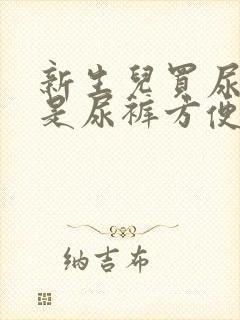 新生兒買尿
是尿裤方便
纳吉布